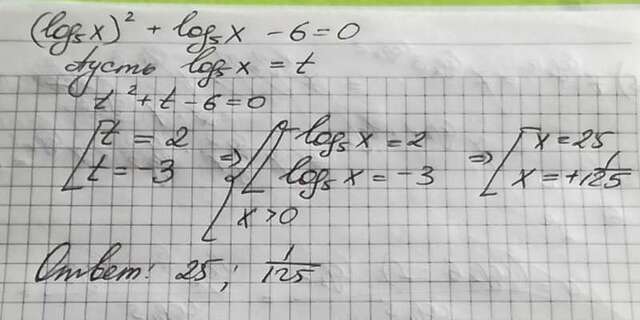 (log₅x)² + log₅x - 6 = 0
Пусть log₅x = t
t² + t - 6 = 0
[t = 2 => {[log₅x = 2 => [x = 25
t = -3 log₅x = -3 x = +1/125
x > 0
Ответ: 25; 1/125